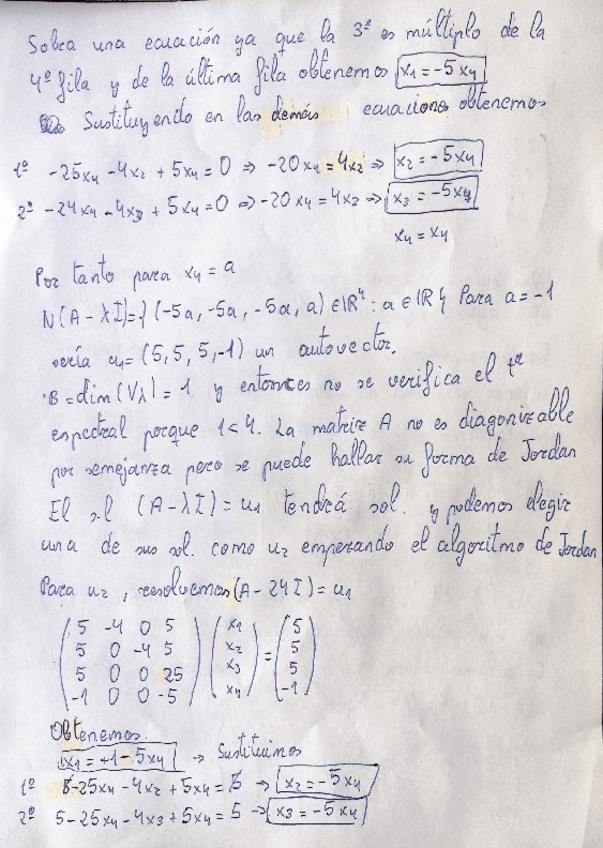 Sobra una ecuación ya que la 3ª es múltiplo de la
4ª fila y de la última fila obtenemos x₁ = -5x₄
Sustituyendo en las demás ecuaciones obtenemos
1º -25x₄ - 4x₂ + 5x₄ = 0 ⇒ -20x₄ = 4x₂ ⇒ x₂ = -5x₄
2º -24x₄ - 4x₃ + 5x₄ = 0 ⇒ -20x₄ = 4x₃ ⇒ x₃ = -5x₄
x₄ = x₄
Por tanto para x₄ = a
N(A - λI) = {(-5a, -5a, -5a, a) ∈ ℝ⁴ : a ∈ ℝ} Para a = -1
sería u₁ = (5, 5, 5, -1) un autovector.
B = dim(Vλ) = 1 y entonces no se verifica el tª
espectral porque 1 < 4. La matriz A no es diagonizable
por semejanza pero se puede hallar su forma de Jordan
El s.l (A - λI) = u₁ tendrá sol. y podemos elegir
una de sus sol. como u₂ empezando el algoritmo de Jordan
Para u₂, resolvemos (A - 24I) = u₁
5 -4 0 5 x₁ 5
5 0 -4 5 x₂ = 5
5 0 0 25 x₃ 5
-1 0 0 -5 x₄ -1
Obtenemos
x₁ = +1 - 5x₄ → Sustituimos
1º 5 - 25x₄ - 4x₂ + 5x₄ = 5 → x₂ = -5x₄
2º 5 - 25x₄ - 4x₃ + 5x₄ = 5 → x₃ = -5x₄